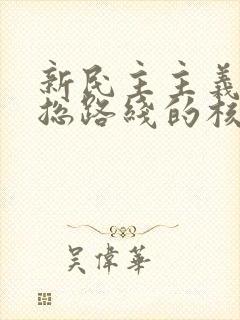 新民主主義
总路綫的核
吴偉華